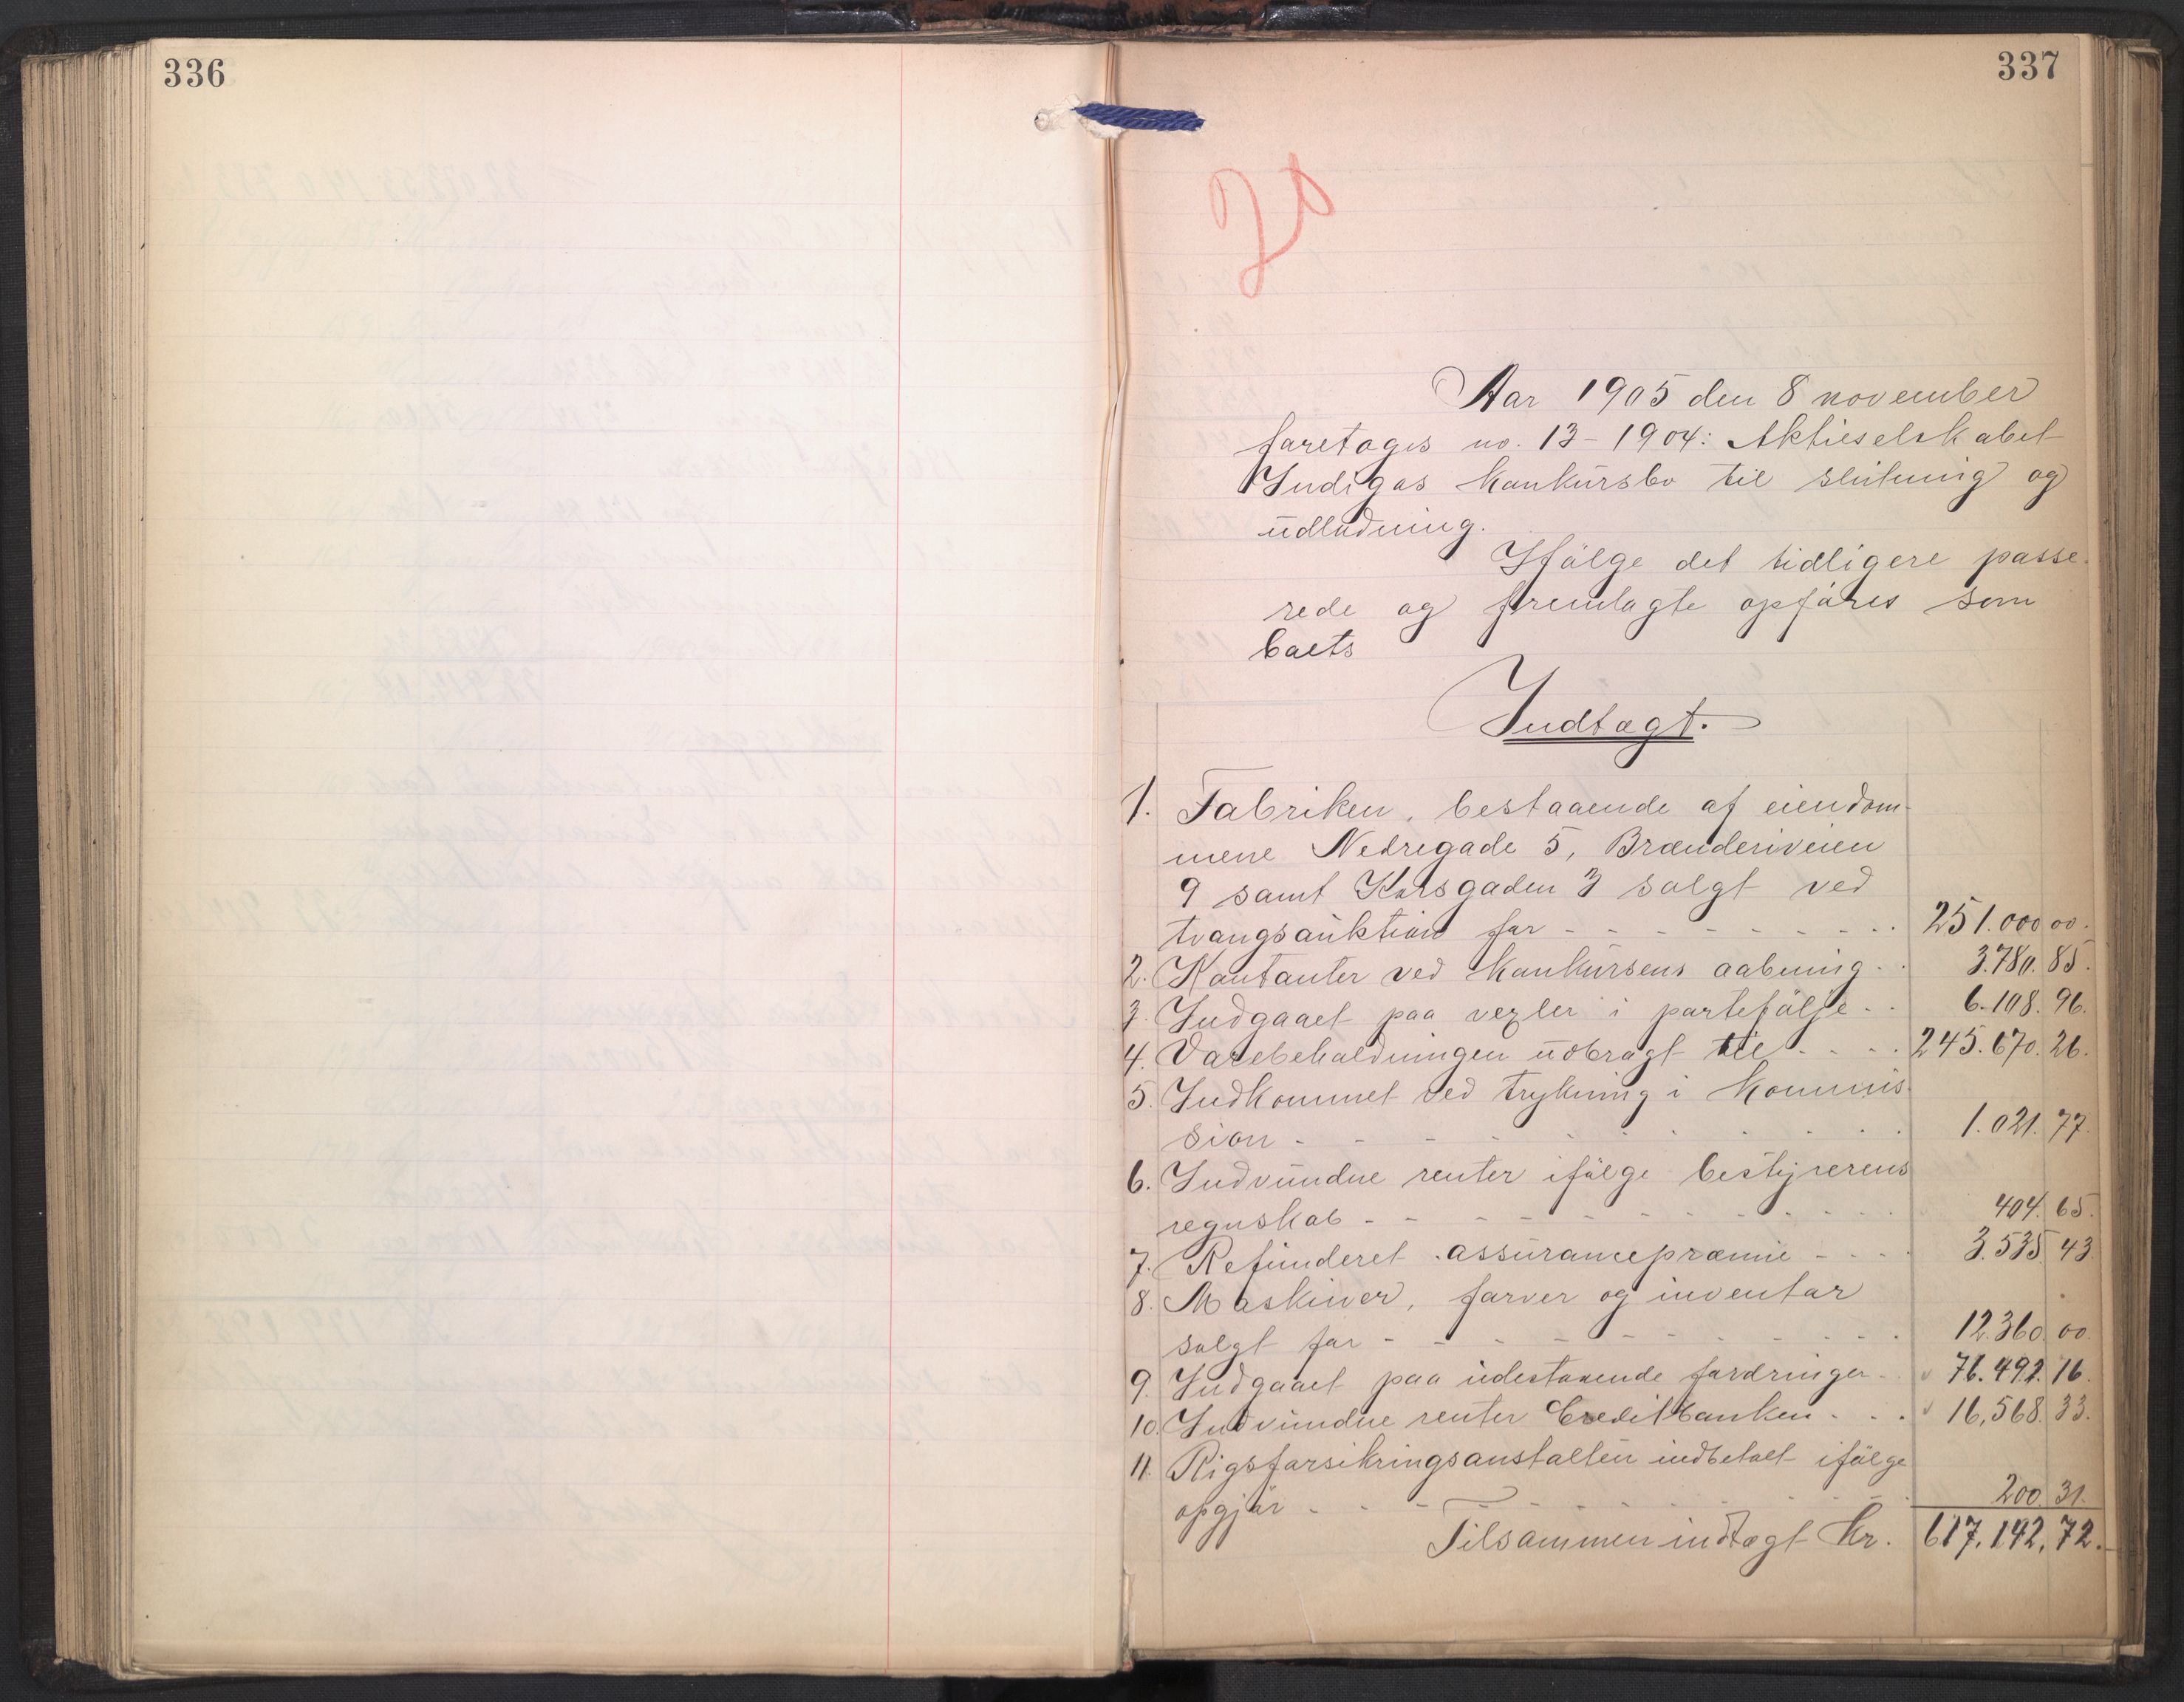 336
337
Aar 1905 den 8 november
foretoges no. 13-1904: Aktieselskabet
Indigos konkursbo til slutning og
udlodning.
Ifølge det tidligere passe-
rede og fremlagte opføres som
boets
Indtægt.
1. Fabriken, bestaaende af eiendom-
mene Nedregade 5, Brænderiveien
9 samt Korsgaden 3 solgt ved
tvangsauktion for - - - - - - - - - 251.000 00.
2. Kontanter ved konkursens aabning - - 3.780. 85.
3. Indgaaet paa vexler i portefølje - - 6.108. 96.
4. Varebeholdningen udbragt til - - - - 245.670. 26.
5. Indkommet ved trykning i kommis-
sion - - - - - - - - - - 1.021. 77.
6. Indvundne renter ifølge bestyrerens
regnskab - - - - - - - - - - 404. 65.
7. Refunderet assurancepræmie - - - - 3.535 43
8. Maskiner, farver og inventar
solgt for - - - - - - - - - - 12.360. 00.
9. Indgaaet paa udestaaende fordringer - - 76.492. 16.
10. Indvundne renter Creditbanken - - - 16,568. 33.
11. Rigsforsikringsanstalten indbetalt ifølge
opgjør - - - - - - - - - - 200. 31.
Tilsammen indtægt kr. 617.142.72.